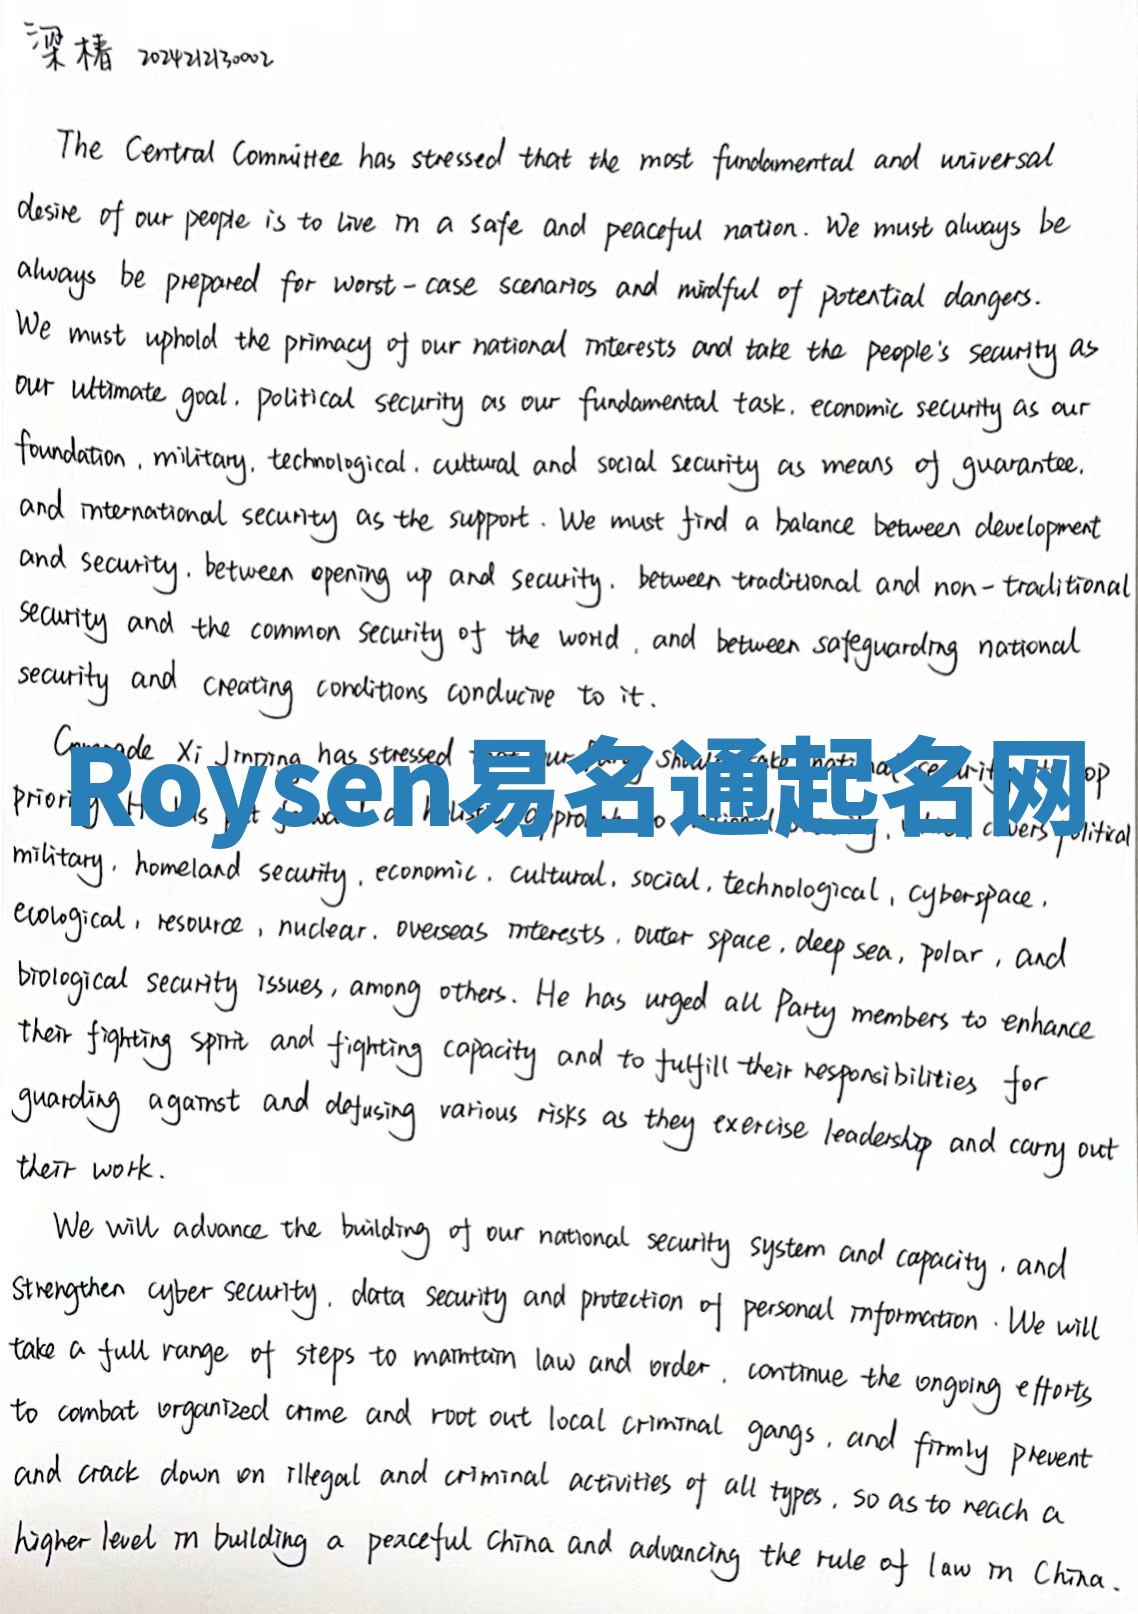 梁椿 2024212130002
The Central Committee has stressed that the most fundamental and universal
desire of our people is to live in a safe and peaceful nation. We must always be
always be prepared for worst-case scenarios and mindful of potential dangers.
We must uphold the primacy of our national interests and take the people's security as
our ultimate goal, political security as our fundamental task, economic security as our
foundation, military, technological, cultural and social security as means of guarantee,
and international security as the support. We must find a balance between development
and security, between opening up and security, between traditional and non-traditional
security and the common security of the world, and between safeguarding national
security and creating conditions conducive to it.
Comrade Xi Jinping has stressed that our Party should take national security top
Roysen易名通起名网
priority. He has put forward a holistic approach to national security, which covers political
military, homeland security, economic, cultural, social, technological, cyberspace,
ecological, resource, nuclear, overseas interests, outer space, deep sea, polar, and
biological security issues, among others. He has urged all Party members to enhance
their fighting spirit and fighting capacity and to fulfill their responsibilities for
guarding against and defusing various risks as they exercise leadership and carry out
their work.
We will advance the building of our national security system and capacity, and
strengthen cyber security, data security and protection of personal information. We will
take a full range of steps to maintain law and order, continue the ongoing efforts
to combat organized crime and root out local criminal gangs, and firmly prevent
and crack down on illegal and criminal activities of all types, so as to reach a
higher level in building a peaceful China and advancing the rule of law in China.